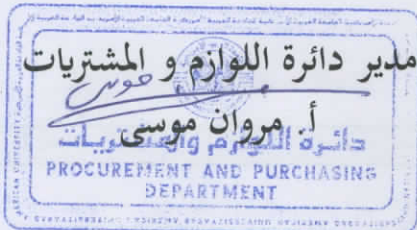 مدير دائرة اللوازم و المشتريات
أ. مروان موسى
دائرة اللوازم والمشتريات
PROCUREMENT AND PURCHASING
DEPARTMENT